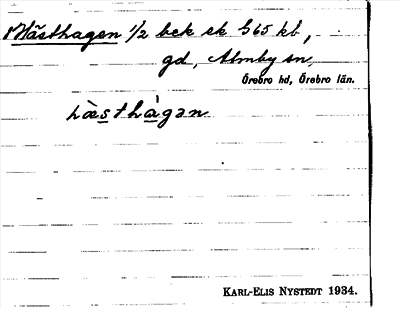 Hästhagen 1/2 bek ek G65 kb,
gd, Almby sn,
Örebro hd, Örebro län.
hàsthàgan
KARL-ELIS NYSTEDT 1934.